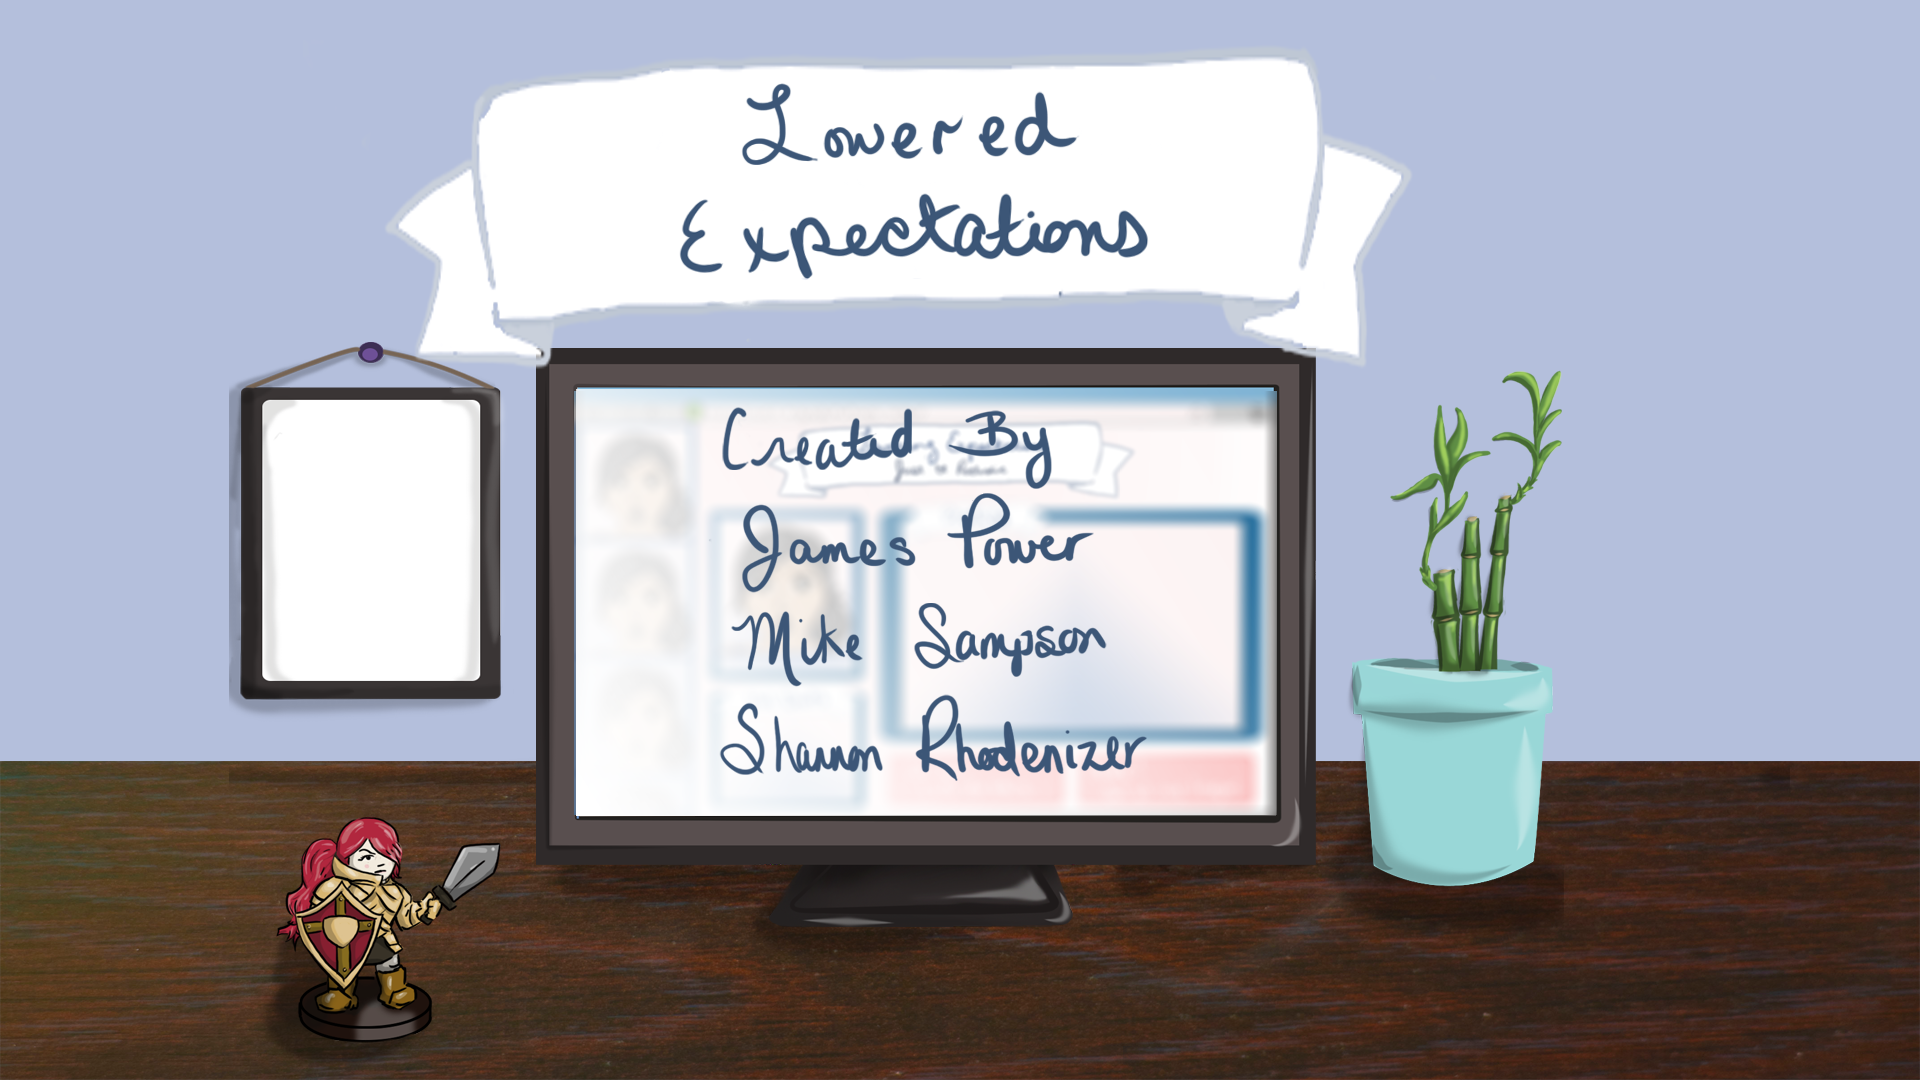 Lowered
Expectations
Created By
James Power
Mike Sampson
Shannon Rhodenizer